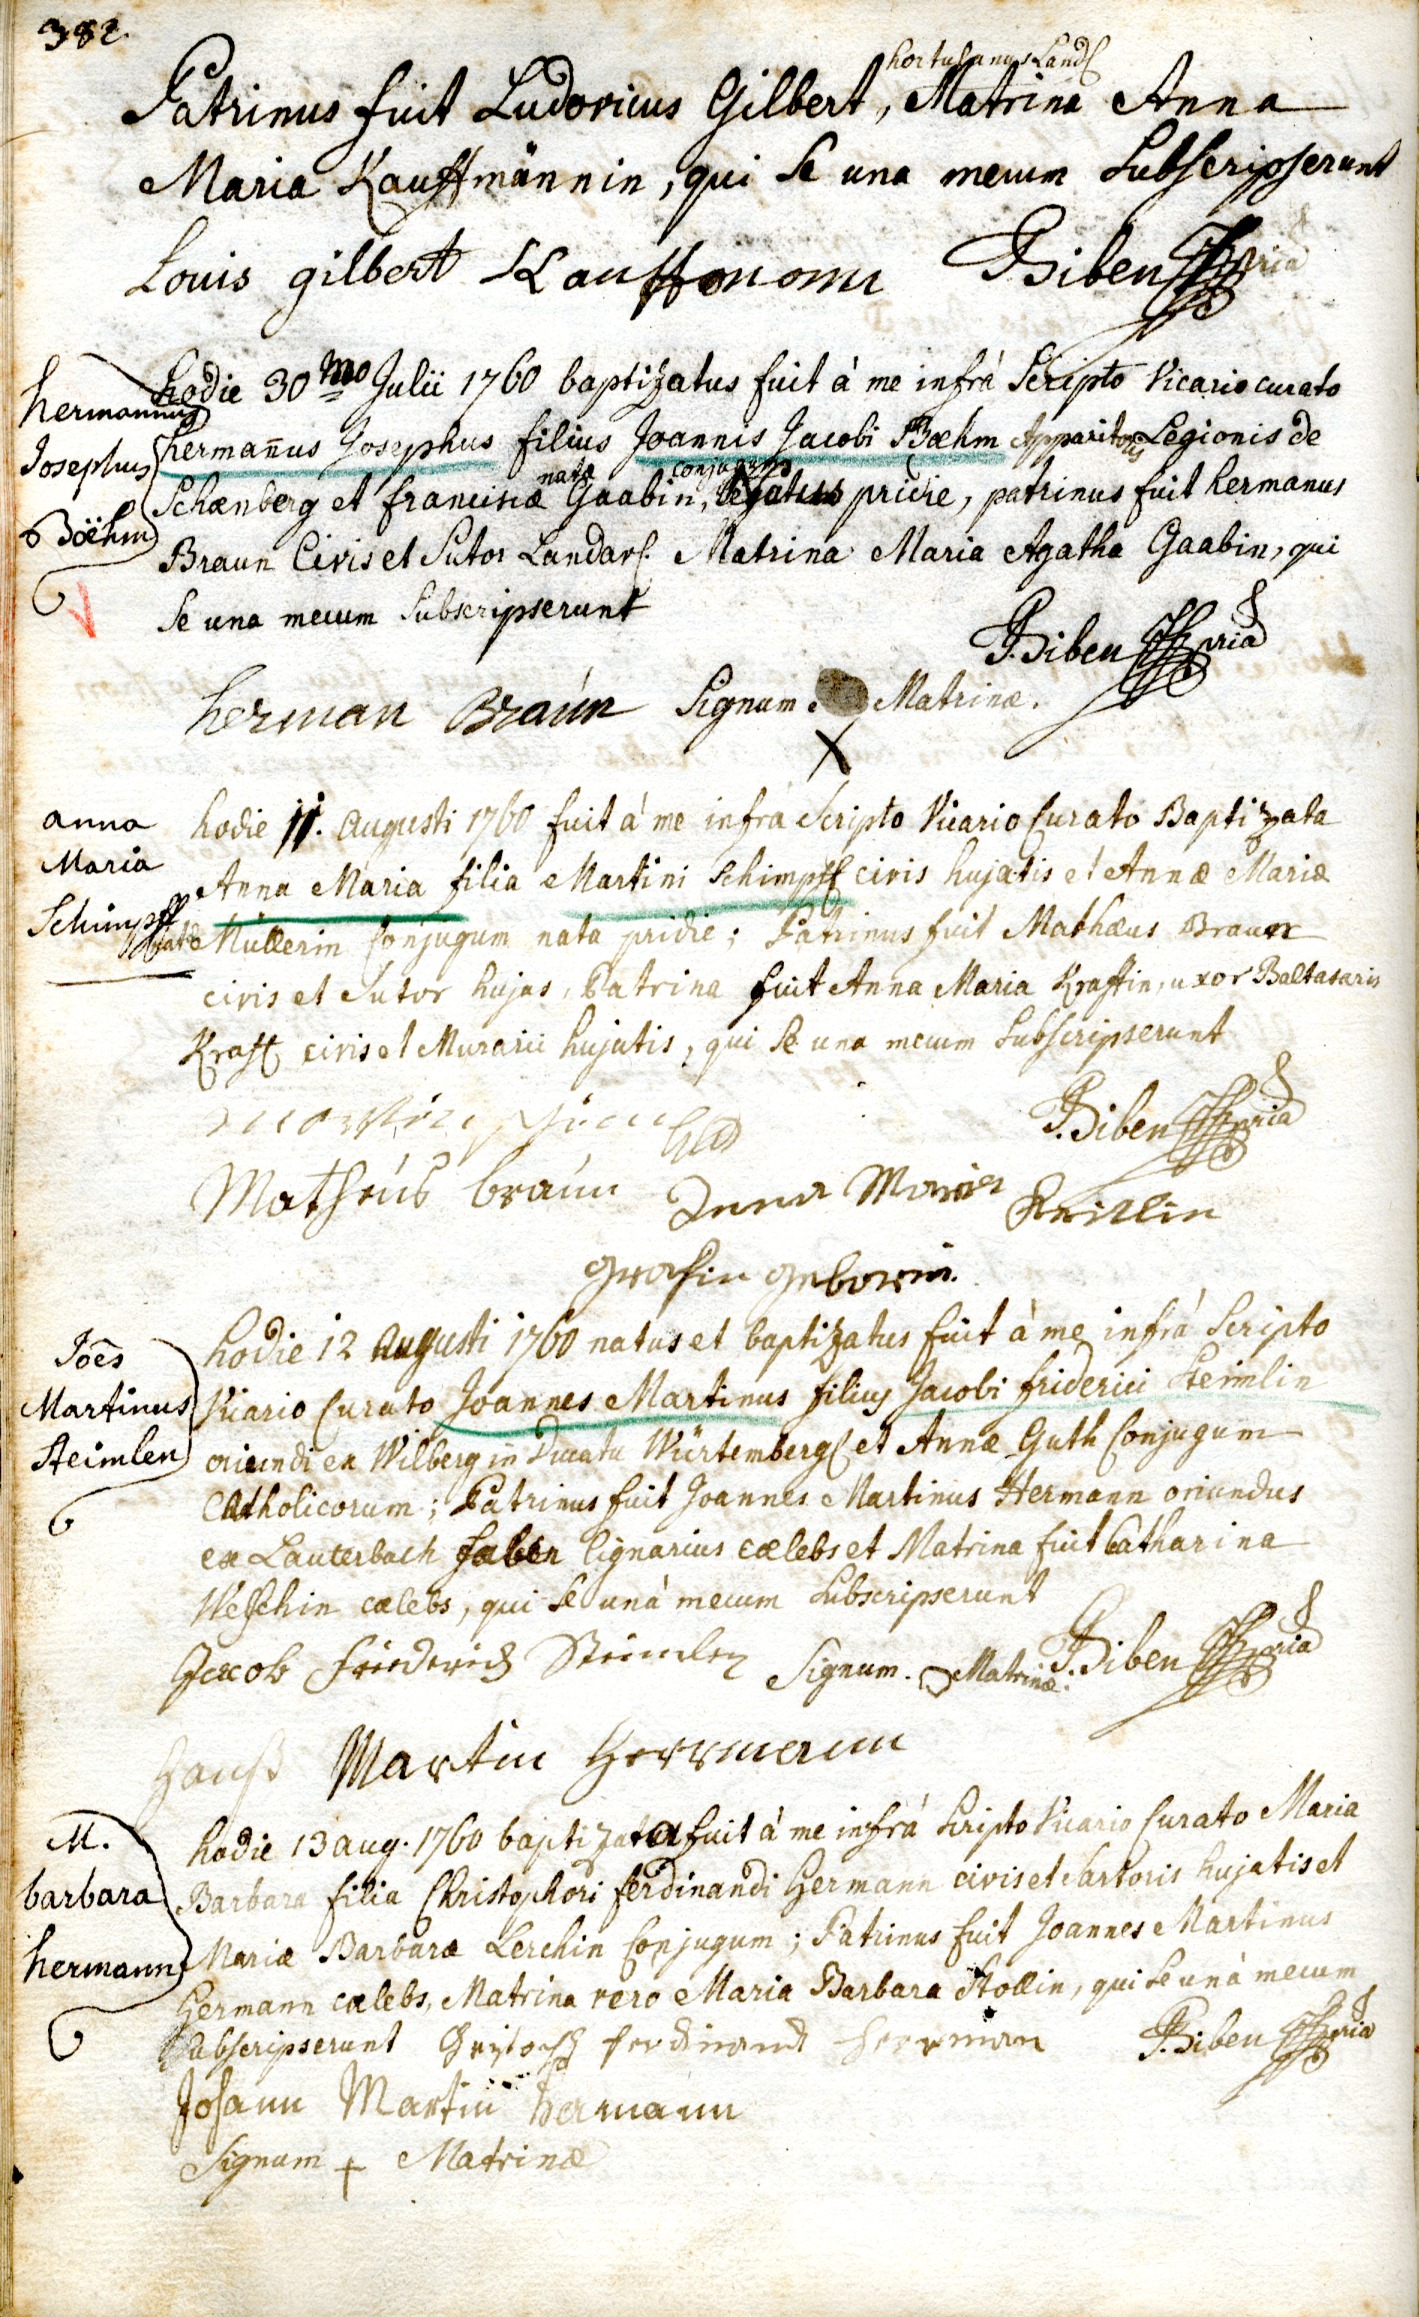 382
hortulanus Land
Patrinus fuit Ludovicus Gilbert, Matrina Anna
Maria Kauffmännin, qui se una mecum Subscripserunt
Louis gilbert P. Biben
Hermannus
Josephus
Böehm
hodie 30 mo Julii 1760 baptizatus fuit à me infrà Scripto Vicario curato
hermañus Josephus filius Joannis Jacobi Bœhm Apparitoris Legionis de
natæ conjugum
Schœnberg et francisiæ Gaabin, pridie, patrinus fuit hermanus
Braun Civis et Sutor Landav. Matrina Maria Agatha Gaabin, qui
Se una mecum Subscripserunt
P. Biben pria
herman Braún Signum Matrinæ.
X
anna
Maria
Schimpff
hodie 11. Augusti 1760 fuit à me infrà Scripto Vicario Curato Baptizata
Anna Maria filia Martini Schimpff civis hujatis et Annæ Mariæ
natæ Müllerin Conjugum nata pridie; Patrinus fuit Mathæus Braun
civis et Sutor hujas, Patrina fuit Anna Maria Kraftin, uxor Baltasaris
Kraft civis et Murarii hujatis, qui Se una mecum Subscripserunt
P. Biben pria
Mathéus braún Anna Maria
geborin.
Joes
Martinus
Steimlen
hodie 12 Augusti 1760 natus et baptizatus fuit à me infrà Scripto
Vicario Curato Joannes Martinus filius Jacobi friderici Steimlin
oriundi ex Wilberg in Ducatu Würtemberg et Annæ Guth Conjugum
Catholicorum; Patrinus fuit Joannes Martinus Hermann oriundus
ex Lauterbach faber lignarius cælebs et Matrina fuit Catharina
Weschin cælebs, qui Se unà mecum Subscripserunt
Jacob friederich Steimlen Signum. Matrinæ. P. Biben pria
Hanß Martin Herrmann
M.
barbara
hermann
hodie 13 aug. 1760 baptizata fuit à me infrà Scripto Vicario Curato Maria
Barbara filia Christophori ferdinandi Hermann civis et Sartoris hujatis et
Mariæ Barbaræ Lerchin Conjugum; Patrinus fuit Joannes Martinus
Hermann cælebs, Matrina vero Maria Barbara Stollin, qui Se unà mecum
Subscripserunt ferdinand herrman P. Biben pria
Johann Martin hermann
Signum + Matrinæ